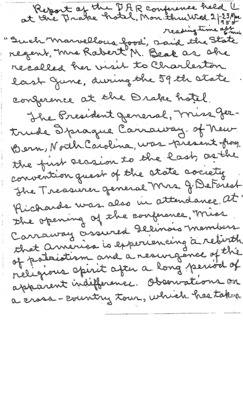 Report of the DAR conference held
at the Drake hotel, Mon thru Wed 21-23 Mar
reading time
"Such marvellous food," said the State
regent, "Mrs Robert M. Beak as she
recalled her visit to Charleston
last June, during the 59th state
conference at the Drake hotel.
The President general, Miss Ger-
trude Sprague Carraway, of New
Bern, North Carolina, was present from
the first session to the last as the
convention guest of the state society
The Treasurer general Mrs J DeForest
Richards was also in attendance. At
the opening of the conference, Miss
Carraway assured Illinois members
that America is experiencing a rebirth
of patriotism and a resurgence of the
religious spirit after a long period of
apparent indifference. Observations on
a cross-country tour, which has taken